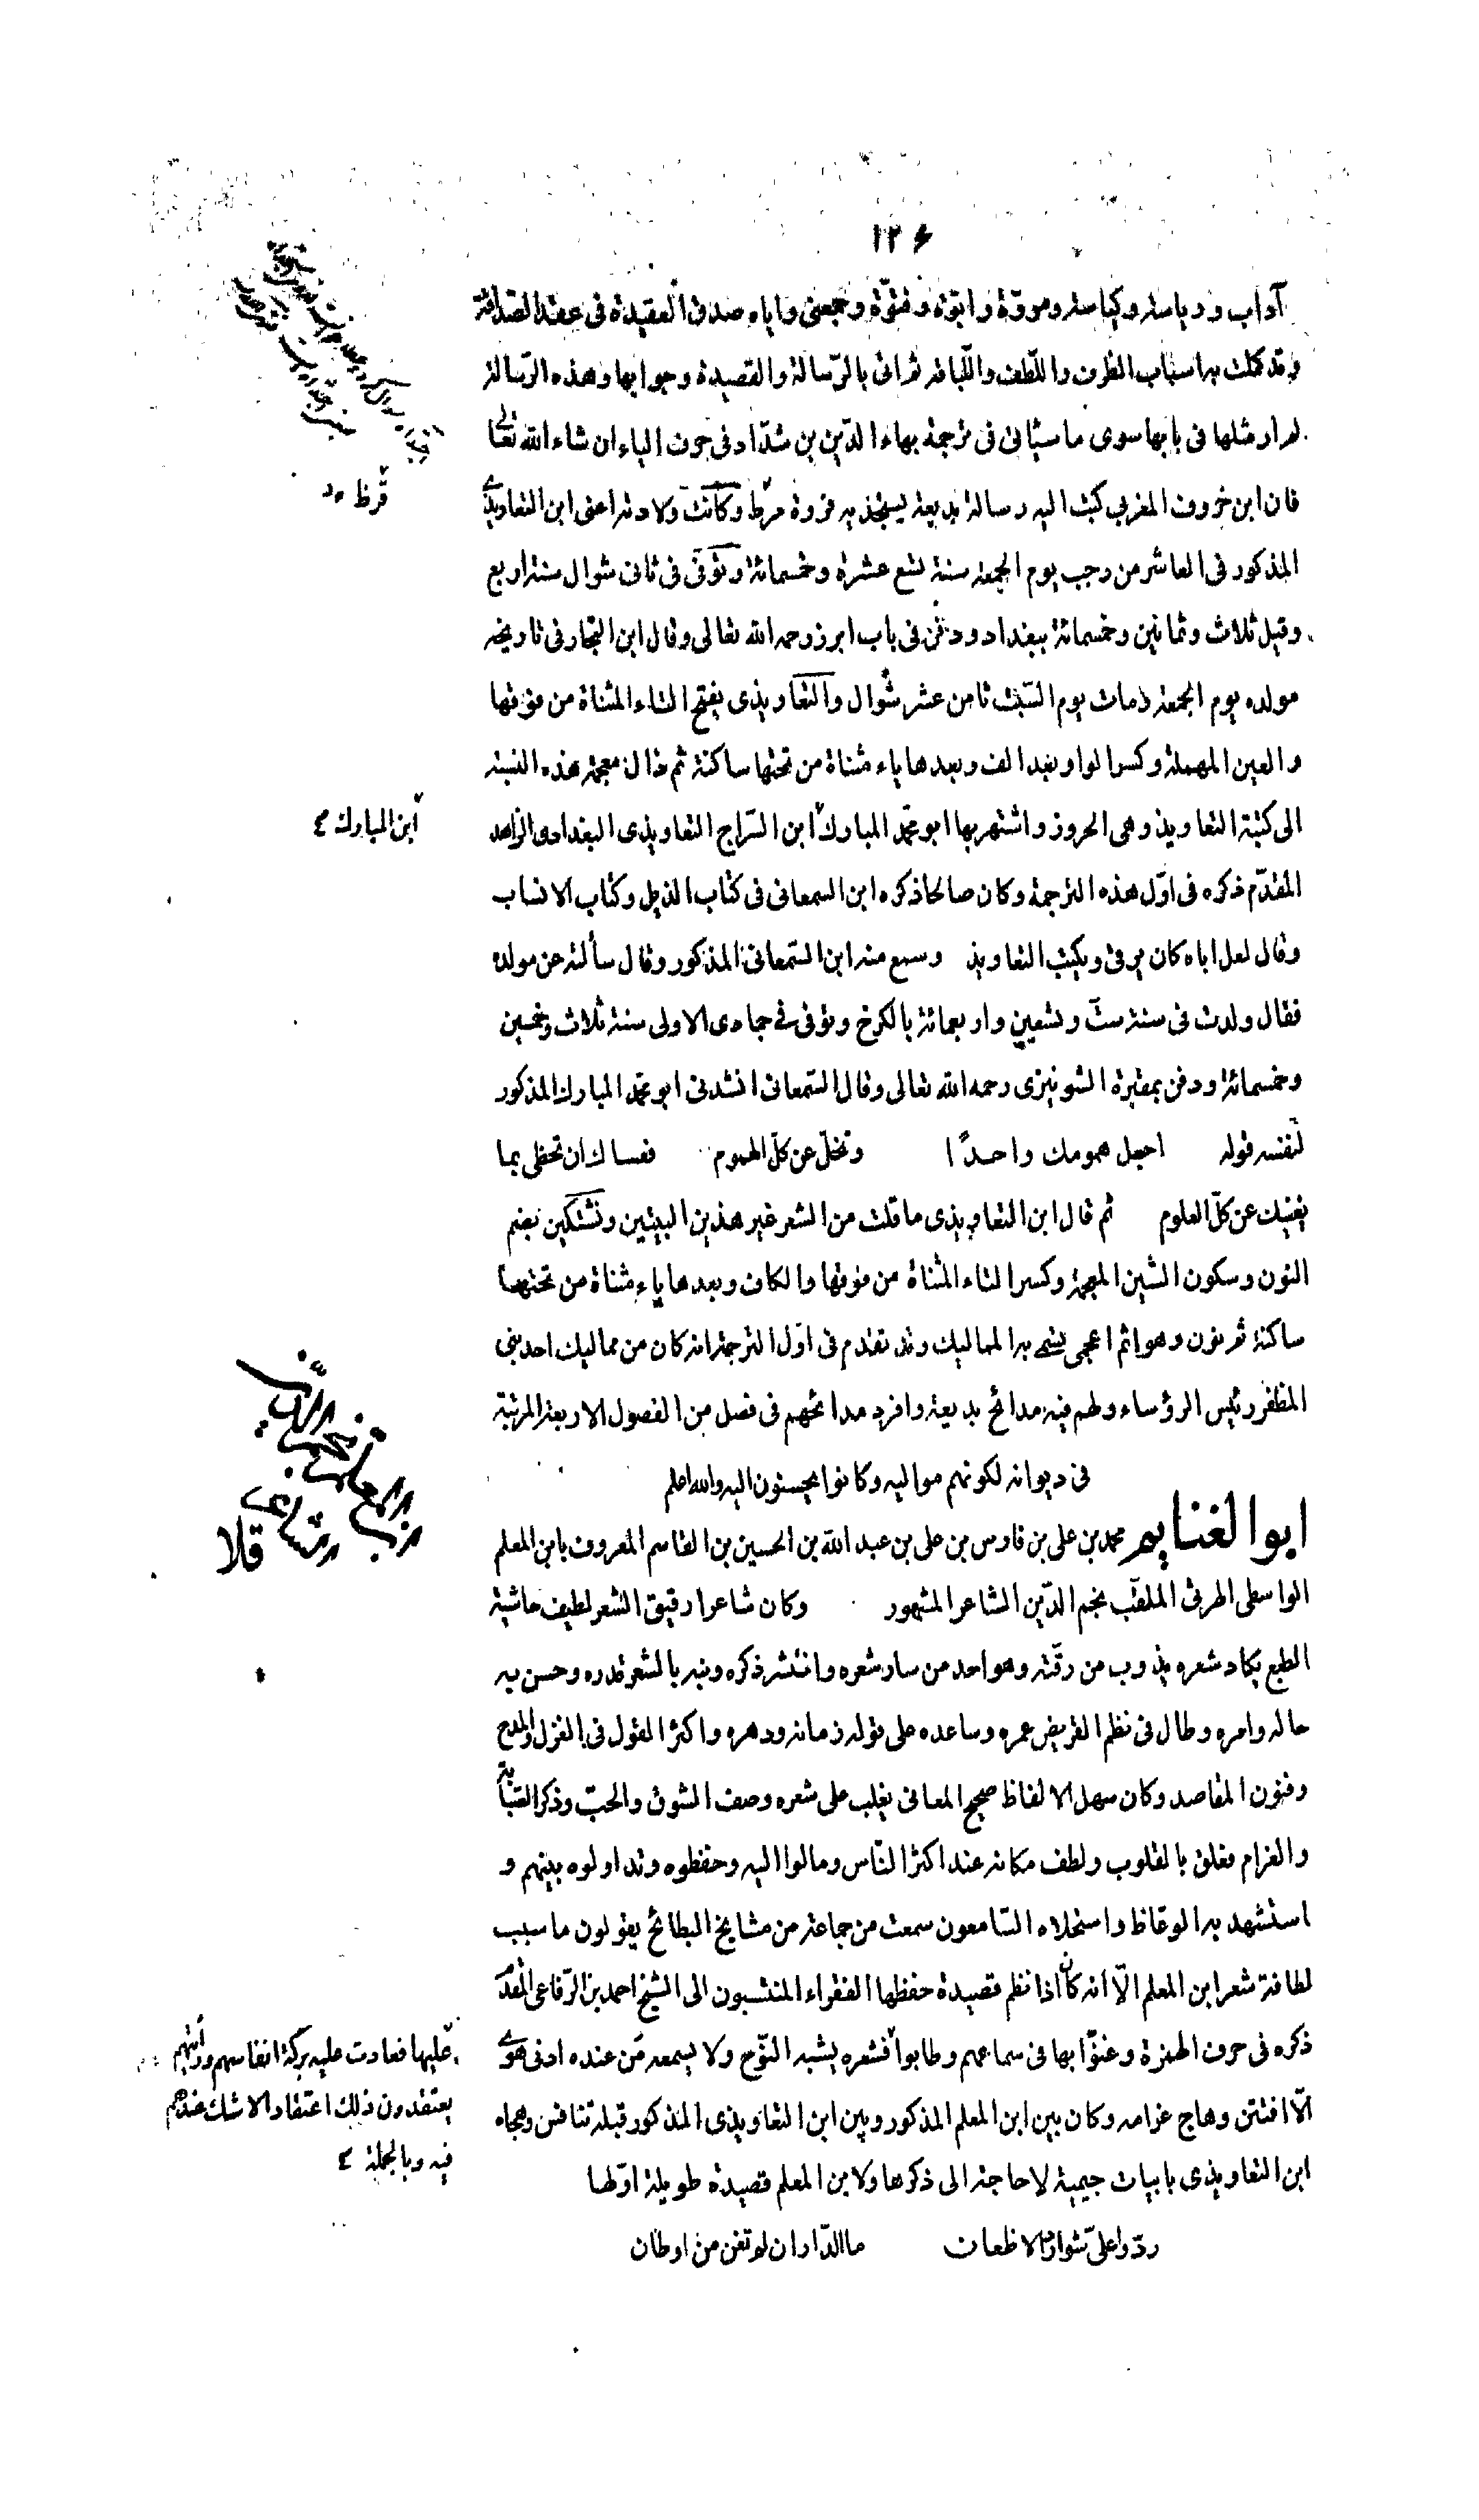 ١٢٤
آداب ورياسة وكياسة ومروّة وابوّة وفتوّة وجمعنى واياه صدق العقيدة فى عقد الصداقة
وقد كملت بها اسباب الظرف واللّطف واللّباقة ثم اتى بالرّسالة والقصيدة وجوابها وهذه الرّسالة
لم ار مثلها فى بابها سوى ما سيأتى فى ترجمة بهاء الدّين بن شدّاد فى حرف الياء ان شاء الله تعالى
فان ابن خروف المغربى كتب اليه رسالة بديعة يستجديه فروة قرط وكانت ولادته اعنى ابن التعاويذى
المذكور فى العاشر من رجب يوم الجمعة سنة تسع عشرة وخمسمائة وتوفّى فى ثانى شوال سنة اربع
وقيل ثلاث وثمانين وخمسمائة ببغداد ودفن فى باب ابرز رحمه الله تعالى وقال ابن النجار فى تاريخه
مولده يوم الجمعة ومات يوم السّبت ثامن عشر شوّال والتعاويذى بفتح التاء المثناة من فوقها
والعين المهملة وكسر الواو بعد الف وبعدها ياء مثناة من تحتها ساكنة ثم ذال معجمة هذه النسبة
الى كتبة التعاويذ وهى الحروز واشتهر بها ابو محمّد المبارك ابن السّراج التعاويذى البغدادى الزاهد
المقدّم ذكره فى اوّل هذه الترجمة وكان صالحا ذكره ابن السمعانى فى كتاب الذيل وكتاب الانساب
وقال لعل اباه كان يرقى ويكتب التعاويذ وسمع منه ابن السّمعانى المذكور وقال سألته عن مولده
فقال ولدت فى سنة ستّ وتسعين واربعمائة بالكرخ وتوفى فى جمادى الاولى سنة ثلاث وخمسين
وخمسمائة ودفن بمقبرة الشونيزى رحمه الله تعالى وقال السّمعانى انشدنى ابو محمّد المبارك المذكور
لنفسه قوله اجعل همومك واحدًا وتخلّ عن كلّ الهموم فعساك ان تحظى بما
يغنيك عن كلّ العلوم ثم قال ابن التعاويذى ما قلت من الشعر غير هذين البيتين ونشتكين بضم
النون وسكون الشين المعجمة وكسر التاء المثناة من فوقها والكاف وبعدها ياء مثناة من تحتها
ساكنة ثم نون وهو اسم اعجمى يسمى به المماليك وقد تقدم فى اوّل الترجمة انه كان من مماليك احد بنى
المظفر رئيس الرؤساء ولهم فيه مدائح بديعة وافرد مدائحهم فى فصل من الفصول الاربعة المرتبة
فى ديوانه لكونهم مواليه وكانوا يحسنون اليه والله اعلم
ابو الغنايم محمد بن على بن فارس بن على بن عبد الله بن الحسين بن القاسم المعروف بابن المعلم
الواسطى الهرثى الملقب نجم الدّين الشاعر المشهور وكان شاعرا رقيق الشعر لطيف حاشية
الطبع يكاد شعره يذوب من رقّته وهو احد من سار شعره وانتشر ذكره ونبه بالشعر قدره وحسن به
حاله وامره وطال فى نظم القريض عمره وساعده على قوله زمانه ودهره واكثر القول فى الغزل والمدح
وفنون المقاصد وكان سهل الالفاظ صحيح المعانى يغلب على شعره وصف الشوق والحبّ وذكر الصّبابة
والغرام فعلق بالقلوب ولطف مكانه عند اكثر النّاس ومالوا اليه وحفظوه وتداولوه بينهم و
استشهد به الوعّاظ واستحلاه السّامعون سمعت من جماعة من مشايخ البطائح يقولون ما سبب
لطافة شعر ابن المعلم الّا انه كان اذا نظم قصيدة حفظها الفقراء المنتسبون الى الشيخ احمد بن الرّفاعى المقدّم
ذكره فى حرف الهمزة وغنّوا بها فى سماعهم وطابوا فشعره يشبه النّوح ولا يسمعه مَن عنده ادنى هوى
الّا افتتن وهاج غرامه وكان بين ابن المعلم المذكور وبين ابن التعاويذى المذكور قبله تنافس وهجاه
ابن التعاويذى بابيات جيمية لا حاجة الى ذكرها ولابن المعلم قصيدة طويلة اوّلها
ردّوا علىّ شوارد الاظعان ما الدّار ان لم تغن من اوطان
قرظ
ابن المبارك
ابن المعلم نجم الدّين
شاعر
عليها فعادت عليه بركة انفاسهم ورأيتهم
يعتقدون ذلك اعتقادا لا شك عندهم
فيه وبالجملة